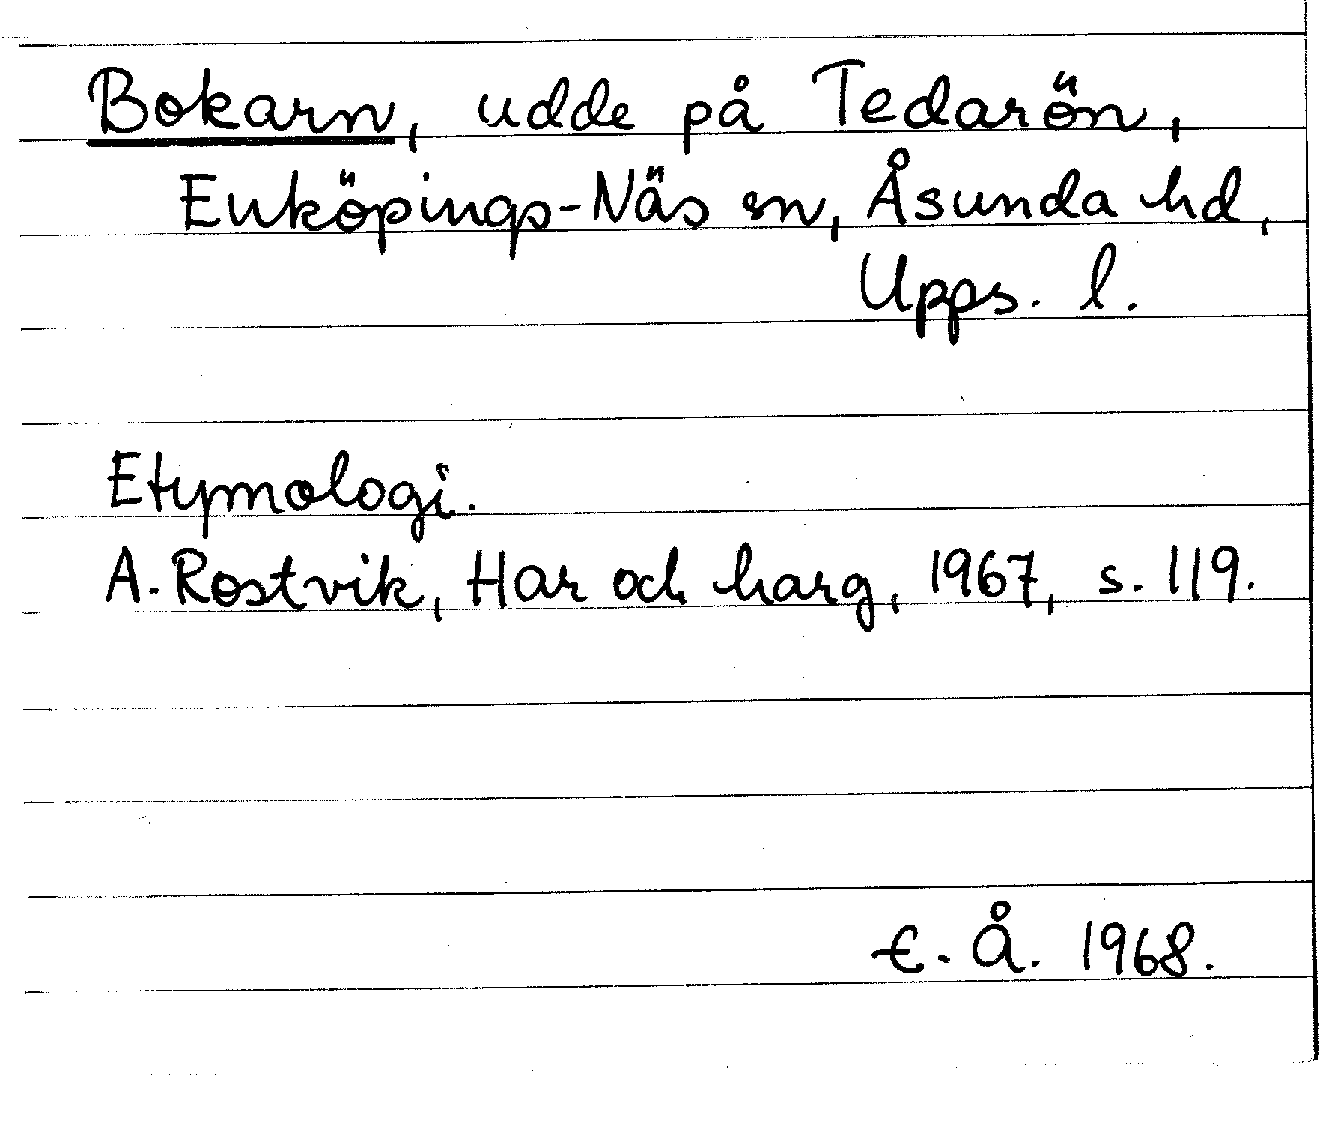 Bokarn, udde på Tedarön,
Enköpings-Näs sn, Åsunda hd,
Upps. l.
Etymologi.
A. Rostvik, Har och harg, 1967, s. 119.
E. Å. 1968.